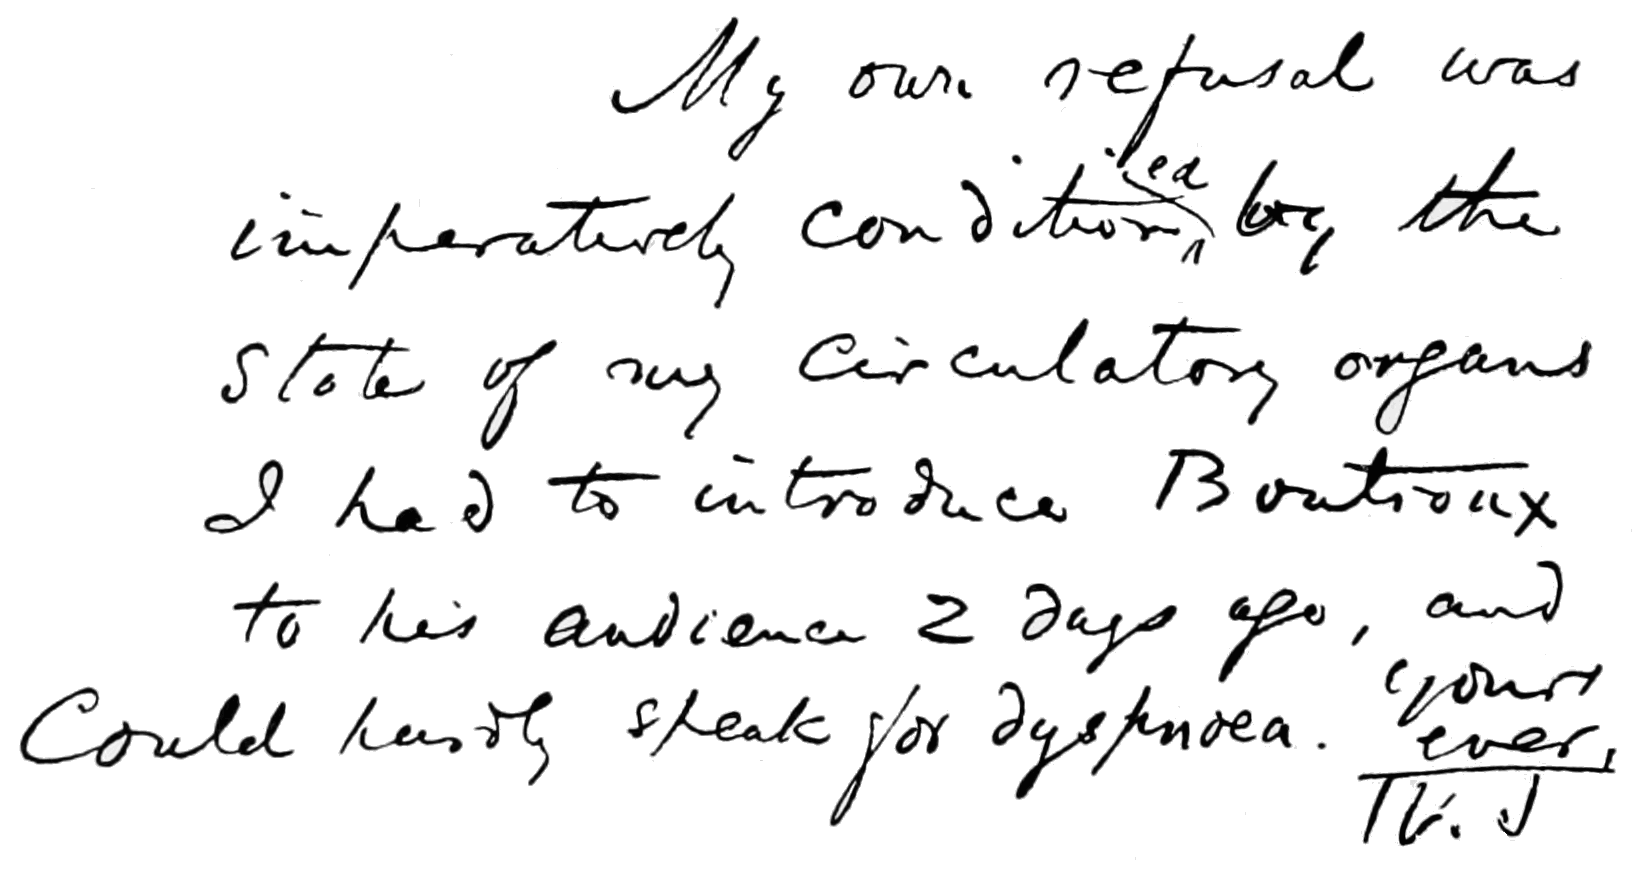 My own refusal was
imperatively conditioned by the
state of my circulatory organs
I had to introduce Boutroux
to his audience 2 days ago, and
Could hardly speak for dyspnoea.
yours
ever,
W. J